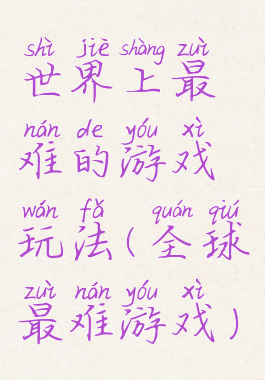 shì jiè shàng zuì
世界上最
nán de yóu xì
难的游戏
wán fǎ quán qiú
玩法(全球
zuì nán yóu xì
最难游戏)